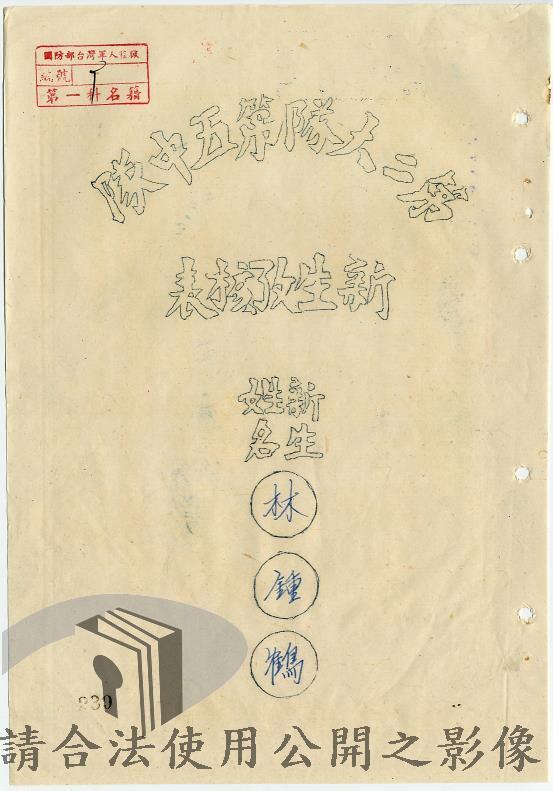 國防部台灣軍人監獄
編號
第一科名籍
第二大隊第五中隊
新生攷核表
新生
姓名
林
鍾
鶴
239
請合法使用公開之影像